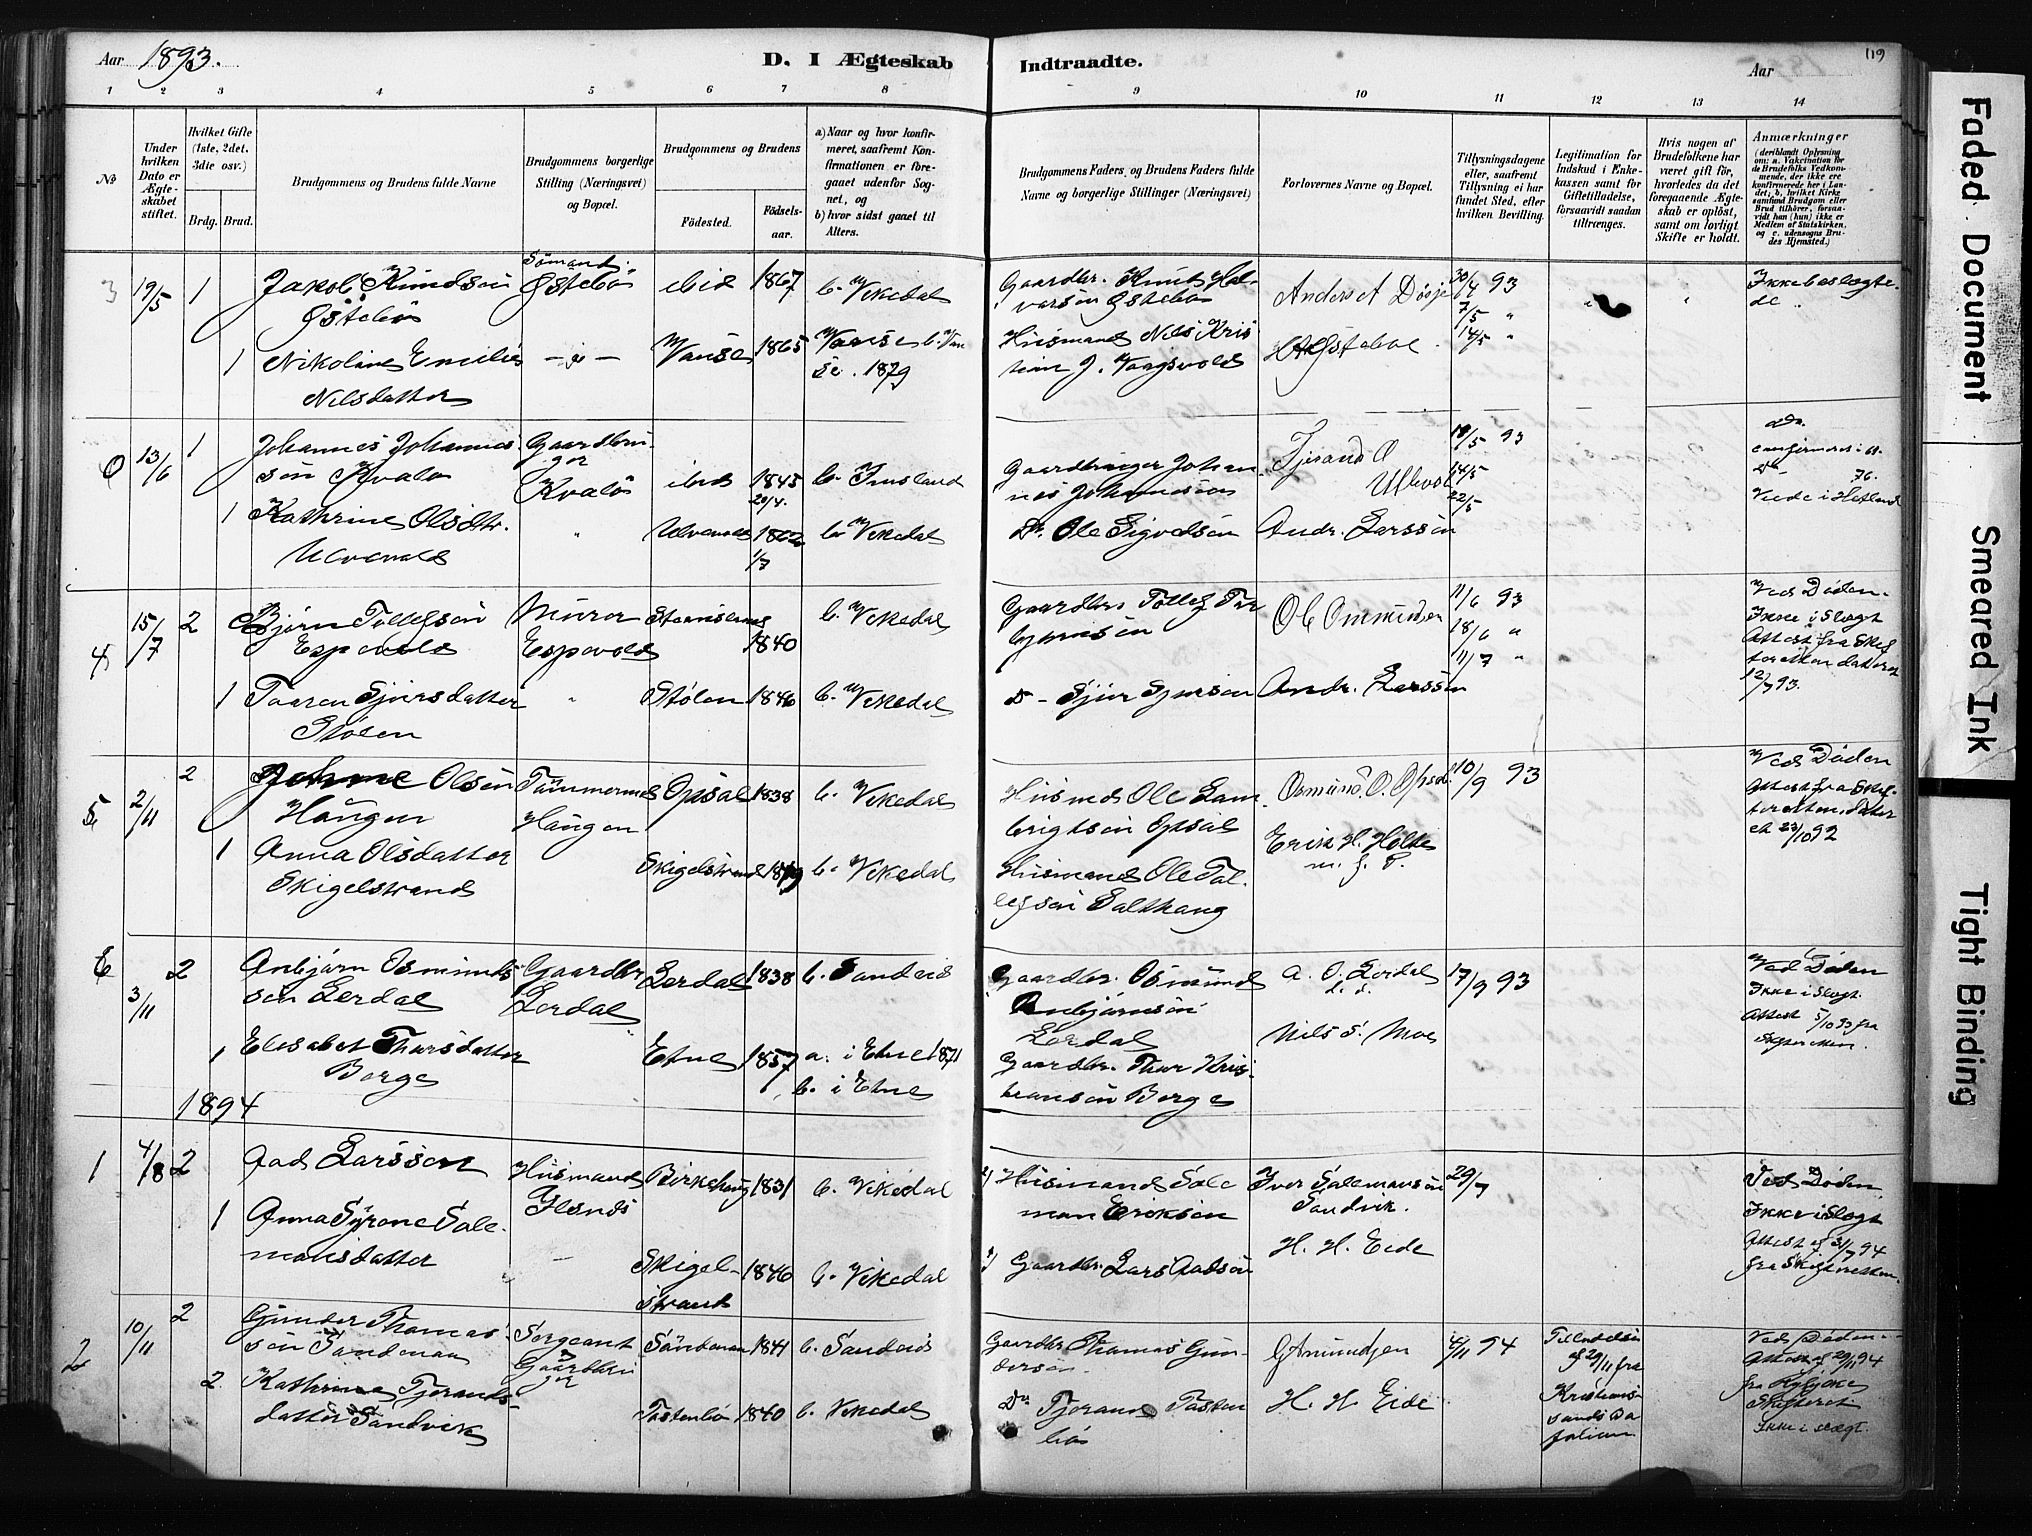 Aar 1893.
D. I Ægteskab Indtraadte.
Aar
119
1 2 3 4 5 6 7 8 9 10 11 12 13 14
No
Under hvilken Dato er Ægteskabet stiftet.
Hvilket Gifte (1ste, 2det, 3die osv.)
Brdg. Brud.
Brudgommens og Brudens fulde Navne
Brudgommens borgerlige Stilling (Næringsvei) og Bopæl.
Brudgommens og Brudens
Fødested. Fødsels-aar.
a) Naar og hvor konfirmeret, saafremt Konfirmationen er foregaaet udenfor Sognet, og
b) hvor sidst gaaet til Alters.
Brudgommens Faders og Brudens Faders fulde Navne og borgerlige Stillinger (Næringsvei)
Forlovernes Navne og Bopæl.
Tillysningsdagene eller, saafremt Tillysning ei har fundet Sted, efter hvilken Bevilling.
Legitimation for Indskud i Enkekassen samt for Giftetilladelse, forsaavidt saadan tiltrænges.
Hvis nogen af Brudefolkene har været gift før, hvorledes da det foregaaende Ægteskab er opløst, samt om lovligt Skifte er holdt.
Anmærkninger
(deriblandt Oplysning om: a. Vakcination for de Brudefolks Vedkommende, der ikke ere konfirmerede her i Landet; b. hvilket Kirkesamfund Brudgom eller Brud tilhører, forsaavidt han (hun) ikke er Medlem af Statskirken, og c. udensogns Brudes Hjemsted.)
3 19/5 1 Jakob Knudsen Østebø Sømand. Østebø ibid 1867 b. Vikedal
Gaardbr. Knut Halvorsen Østebø Anders A Døsje 30/4 93 7/5 " 14/5 " Ikke beslægtede
1 Nikoline Emilie Nilsdatter Vanse 1865 Vanse b. Vanse. 1879
Husmand Nils Kristian J.
13/6 1 Johannes Johannessen Kvalø Gaardbruger Kvalø ibid 1845 20/4. b. Imsland
Gaardbruger Johannes Johannesen Tjerand O Ulvevol 93 14/5 22/5
1 Kathrine Olsdtr. Ulvevold " Ulvevold 1862 1/7 b. Vikedal
Do. Ole Sigvedsen Andr. Larssen
4 15/7 2 Bjørn Tollefsen Espevold Murer Espevold 1840 b. Vikedal
Gaardbr. Tollef Torbjørnsen O C Ommundsen 11/6 93 18/6 " 11/7 "
Ved Døden. Ikke i Slægt Attest fra Skifteretten dateret 12/7 93.
1 Taaren Sjursdatter Stølen " Stølen 1846 b. Vikedal
D - Sjur Sjursen Andr. Larssen
5 2/11 2 Olsen Haugen Tømmermd Haugen Opsal 1838 b. Vikedal
Husmd Ole Lambrigtsen Opsal Osmund. O. Opsal. 10/9 93
Ved Døden Attest fra Skifteretten dateret 23/10 92
1 Anna Olsdatter Skigelstrand Skigelstrand b. Vikedal
Husmand Ole Tollefsen Erik H. Holte m. f. P.
3/11 2 Anbjørn Osmundsen Lerdal Gaardbr Lerdal Lerdal 1838 b. Sandeid
Gaardbr. Osmund Anbjørnsen Lerdal A. O. Lerdal 17/9 93
Ved Døden Ikke i Slægt. Attest 5/10 93 fra Skifteretten.
1 Elisabet Thorsdatter Berge Etne 1857 a. i Etne 1871 b. i Etne
Gaardbr. Thor Kristiansen Berge Nils S. Moe
1894
1 4/8 2 Aad Larssen Husmand Birkehaug 1831 b. Vikedal
Husmand Salemon Eriksen Iver Salemonsen Sandvik. 29/7
Ved Døden, Ikke i Slægt Attest af 31/7 94 fra Skifteretten.
1 Anna Syrene Salemonsdatter Skigelstrand 1846 b. Vikedal
Gaardbr. Lars Aadsen H. H. Eide
2 10/11 2 Gunder Thomassen Søndenaa Sergeant Gaardbruger Søndenaa 1841 b. Sandeid
Gaardbr Thomas Gundersen G Amundsen 4/11 94
Tilladelse af 29/11 fra Kristianssands Bataljon
Ved Døden. Attest af 29/11 94 fra Ryfylke Skifteret Ikke i slægt.
2. Kathrine Tjerandsdatter Sandvik Tostenbø 1840 b. Vikedal
Do Tjerand Tostenbø H. H. Eide
Faded Document
Smeared Ink
Tight Binding